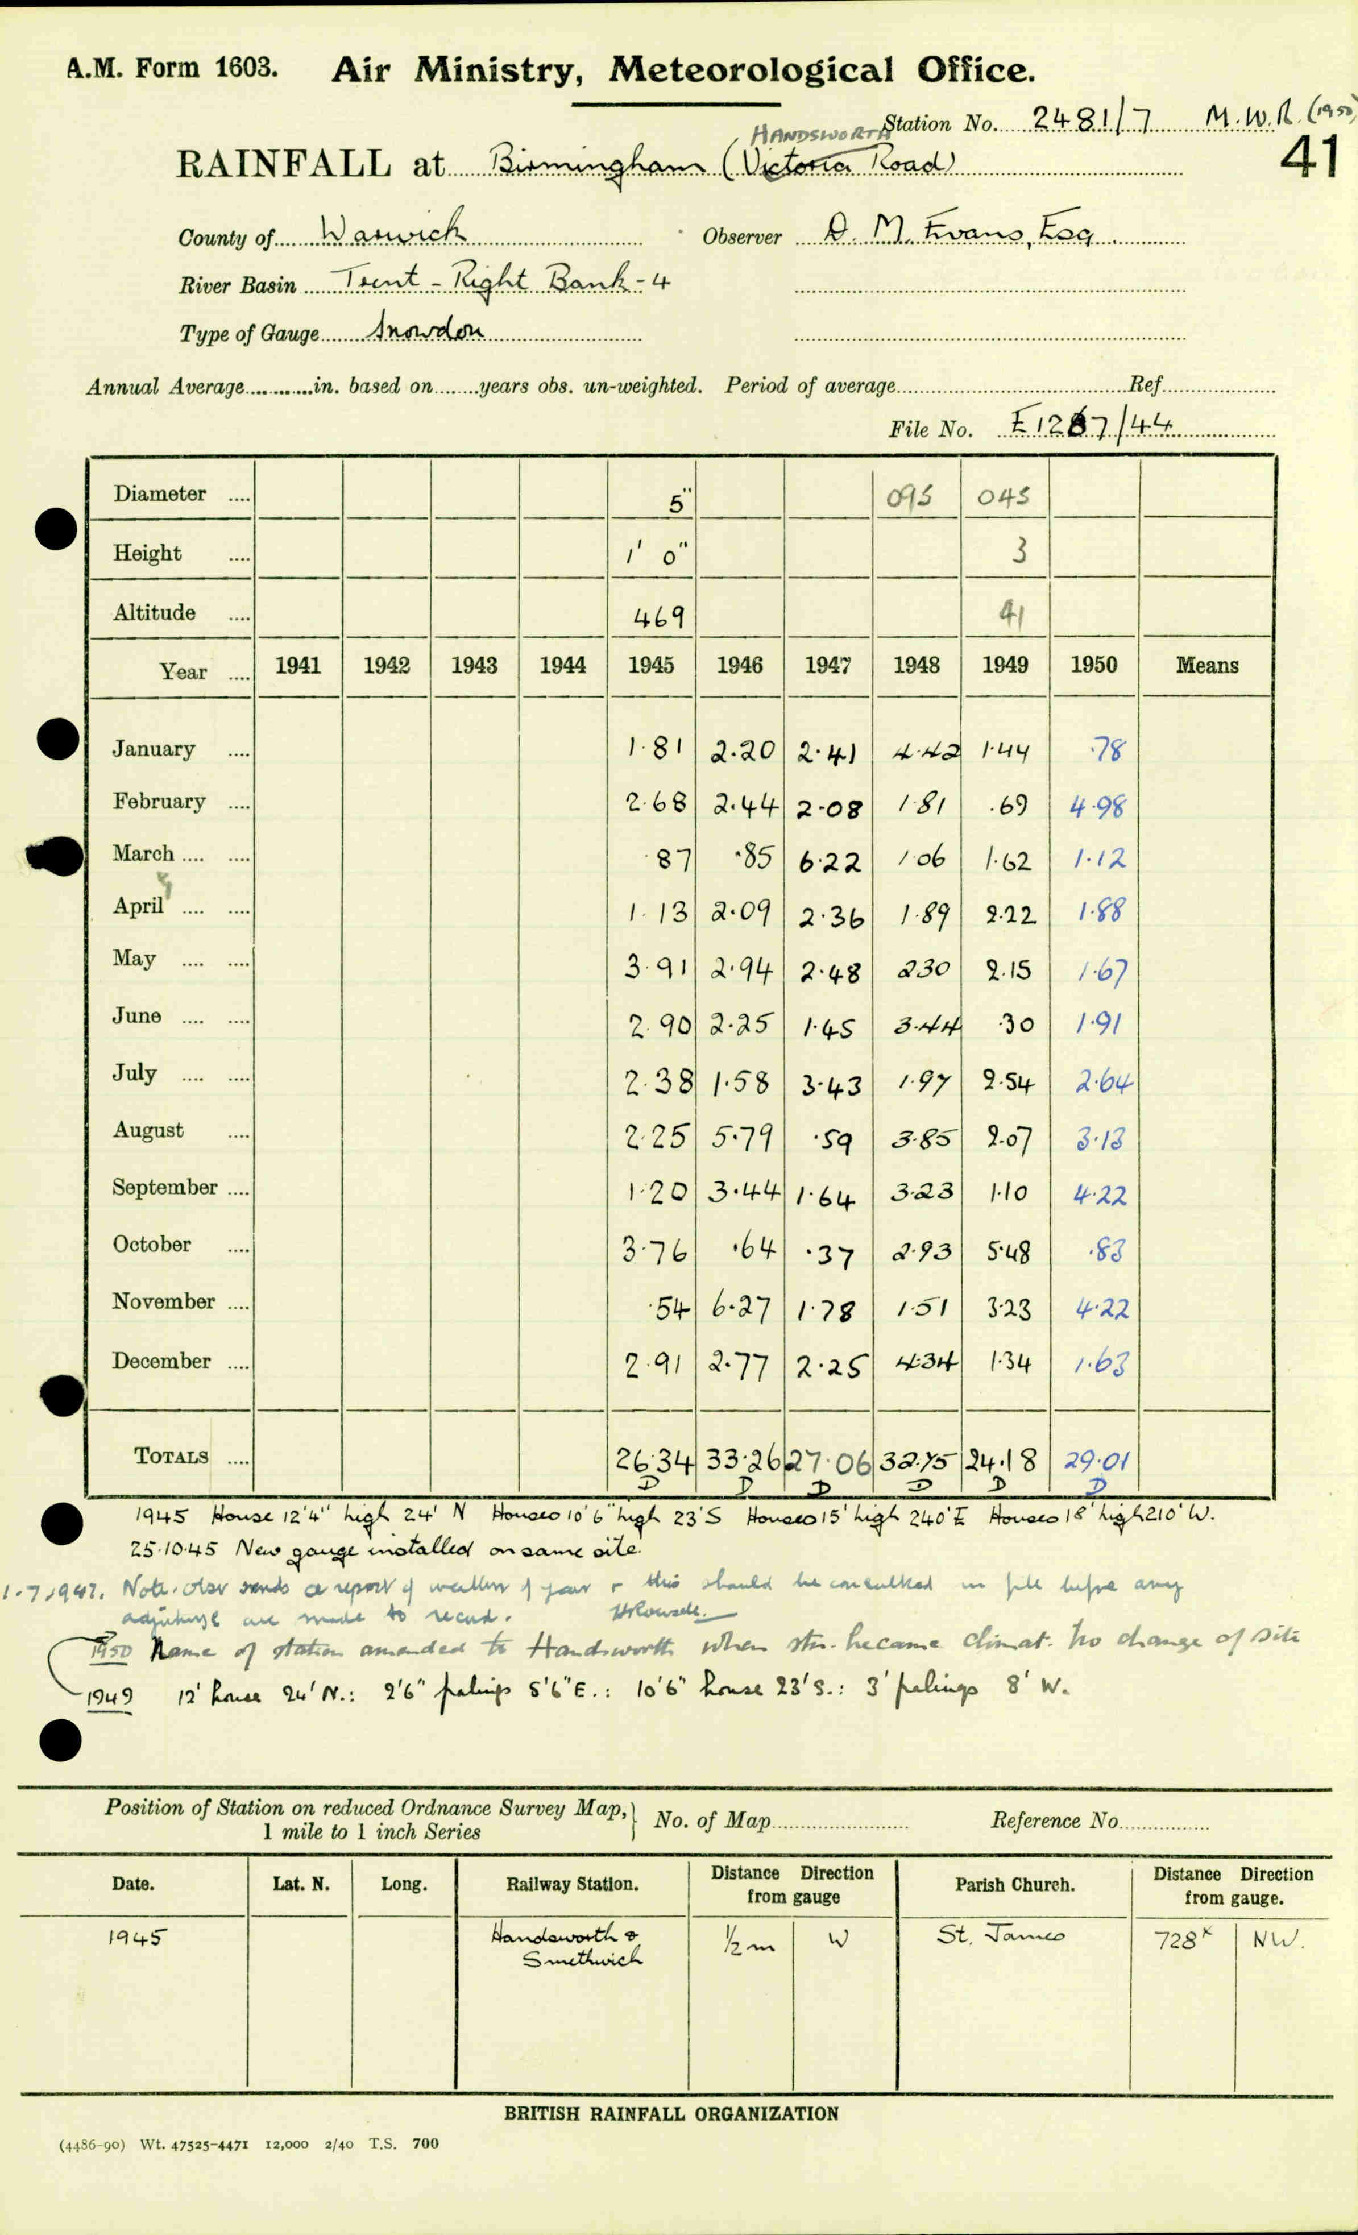 A.M. Form 1603. Air Ministry, Meteorological Office.
Station No. 2481/7 M.W.R. (1950)
HANDSWORTH
41
RAINFALL at Birmingham (Victoria Road)
County of Warwick Observer D. M. Evans, Esq.
River Basin Trent - Right Bank - 4
Type of Gauge Snowdon
Annual Average in. based on years obs. un-weighted. Period of average Ref.
File No. E1267/44
Diameter 5" 095 045
Height 1' 0" 3
Altitude 469 41
Year 1941 1942 1943 1944 1945 1946 1947 1948 1949 1950 Means
January 1.81 2.20 2.41 4.42 1.44 .78
February 2.68 2.44 2.08 1.81 .69 4.98
March .87 .85 6.22 1.06 1.62 1.12
April 1.13 2.09 2.36 1.89 2.22 1.88
May 3.91 2.94 2.48 2.30 2.15 1.67
June 2.90 2.25 1.45 3.44 .30 1.91
July 2.38 1.58 3.43 1.97 2.54 2.64
August 2.25 5.79 .59 3.85 2.07 3.13
September 1.20 3.44 1.64 3.23 1.10 4.22
October 3.76 .64 .37 2.93 5.48 .83
November .54 6.27 1.78 1.51 3.23 4.22
December 2.91 2.77 2.25 4.34 1.34 1.63
TOTALS 26.34 33.26 27.06 32.75 24.18 29.01
D D D D D D
1945 House 12'4" high 24' N Houses 10'6" high 23'S Houses 15' high 240'E Houses 18' high 210' W.
25.10.45 New gauge installed on same site.
1-7-1947. Note. Obsr sends a report of weather of year & this should be consulted in file before any
adjustments are made to record.
1950 Name of station amended to Handsworth when stn. became climat. No change of site
1949 12' house 24' N.: 2'6" palings 5'6" E.: 10'6" house 23'S.: 3' palings 8' W.
Position of Station on reduced Ordnance Survey Map, 1 mile to 1 inch Series No. of Map Reference No.
Date. Lat. N. Long. Railway Station. Distance Direction from gauge Parish Church. Distance Direction from gauge.
1945 Handsworth & Smethwick 1/2 m W St. James 728x NW.
BRITISH RAINFALL ORGANIZATION
(4486-90) Wt. 47525-4471 12,000 2/40 T.S. 700